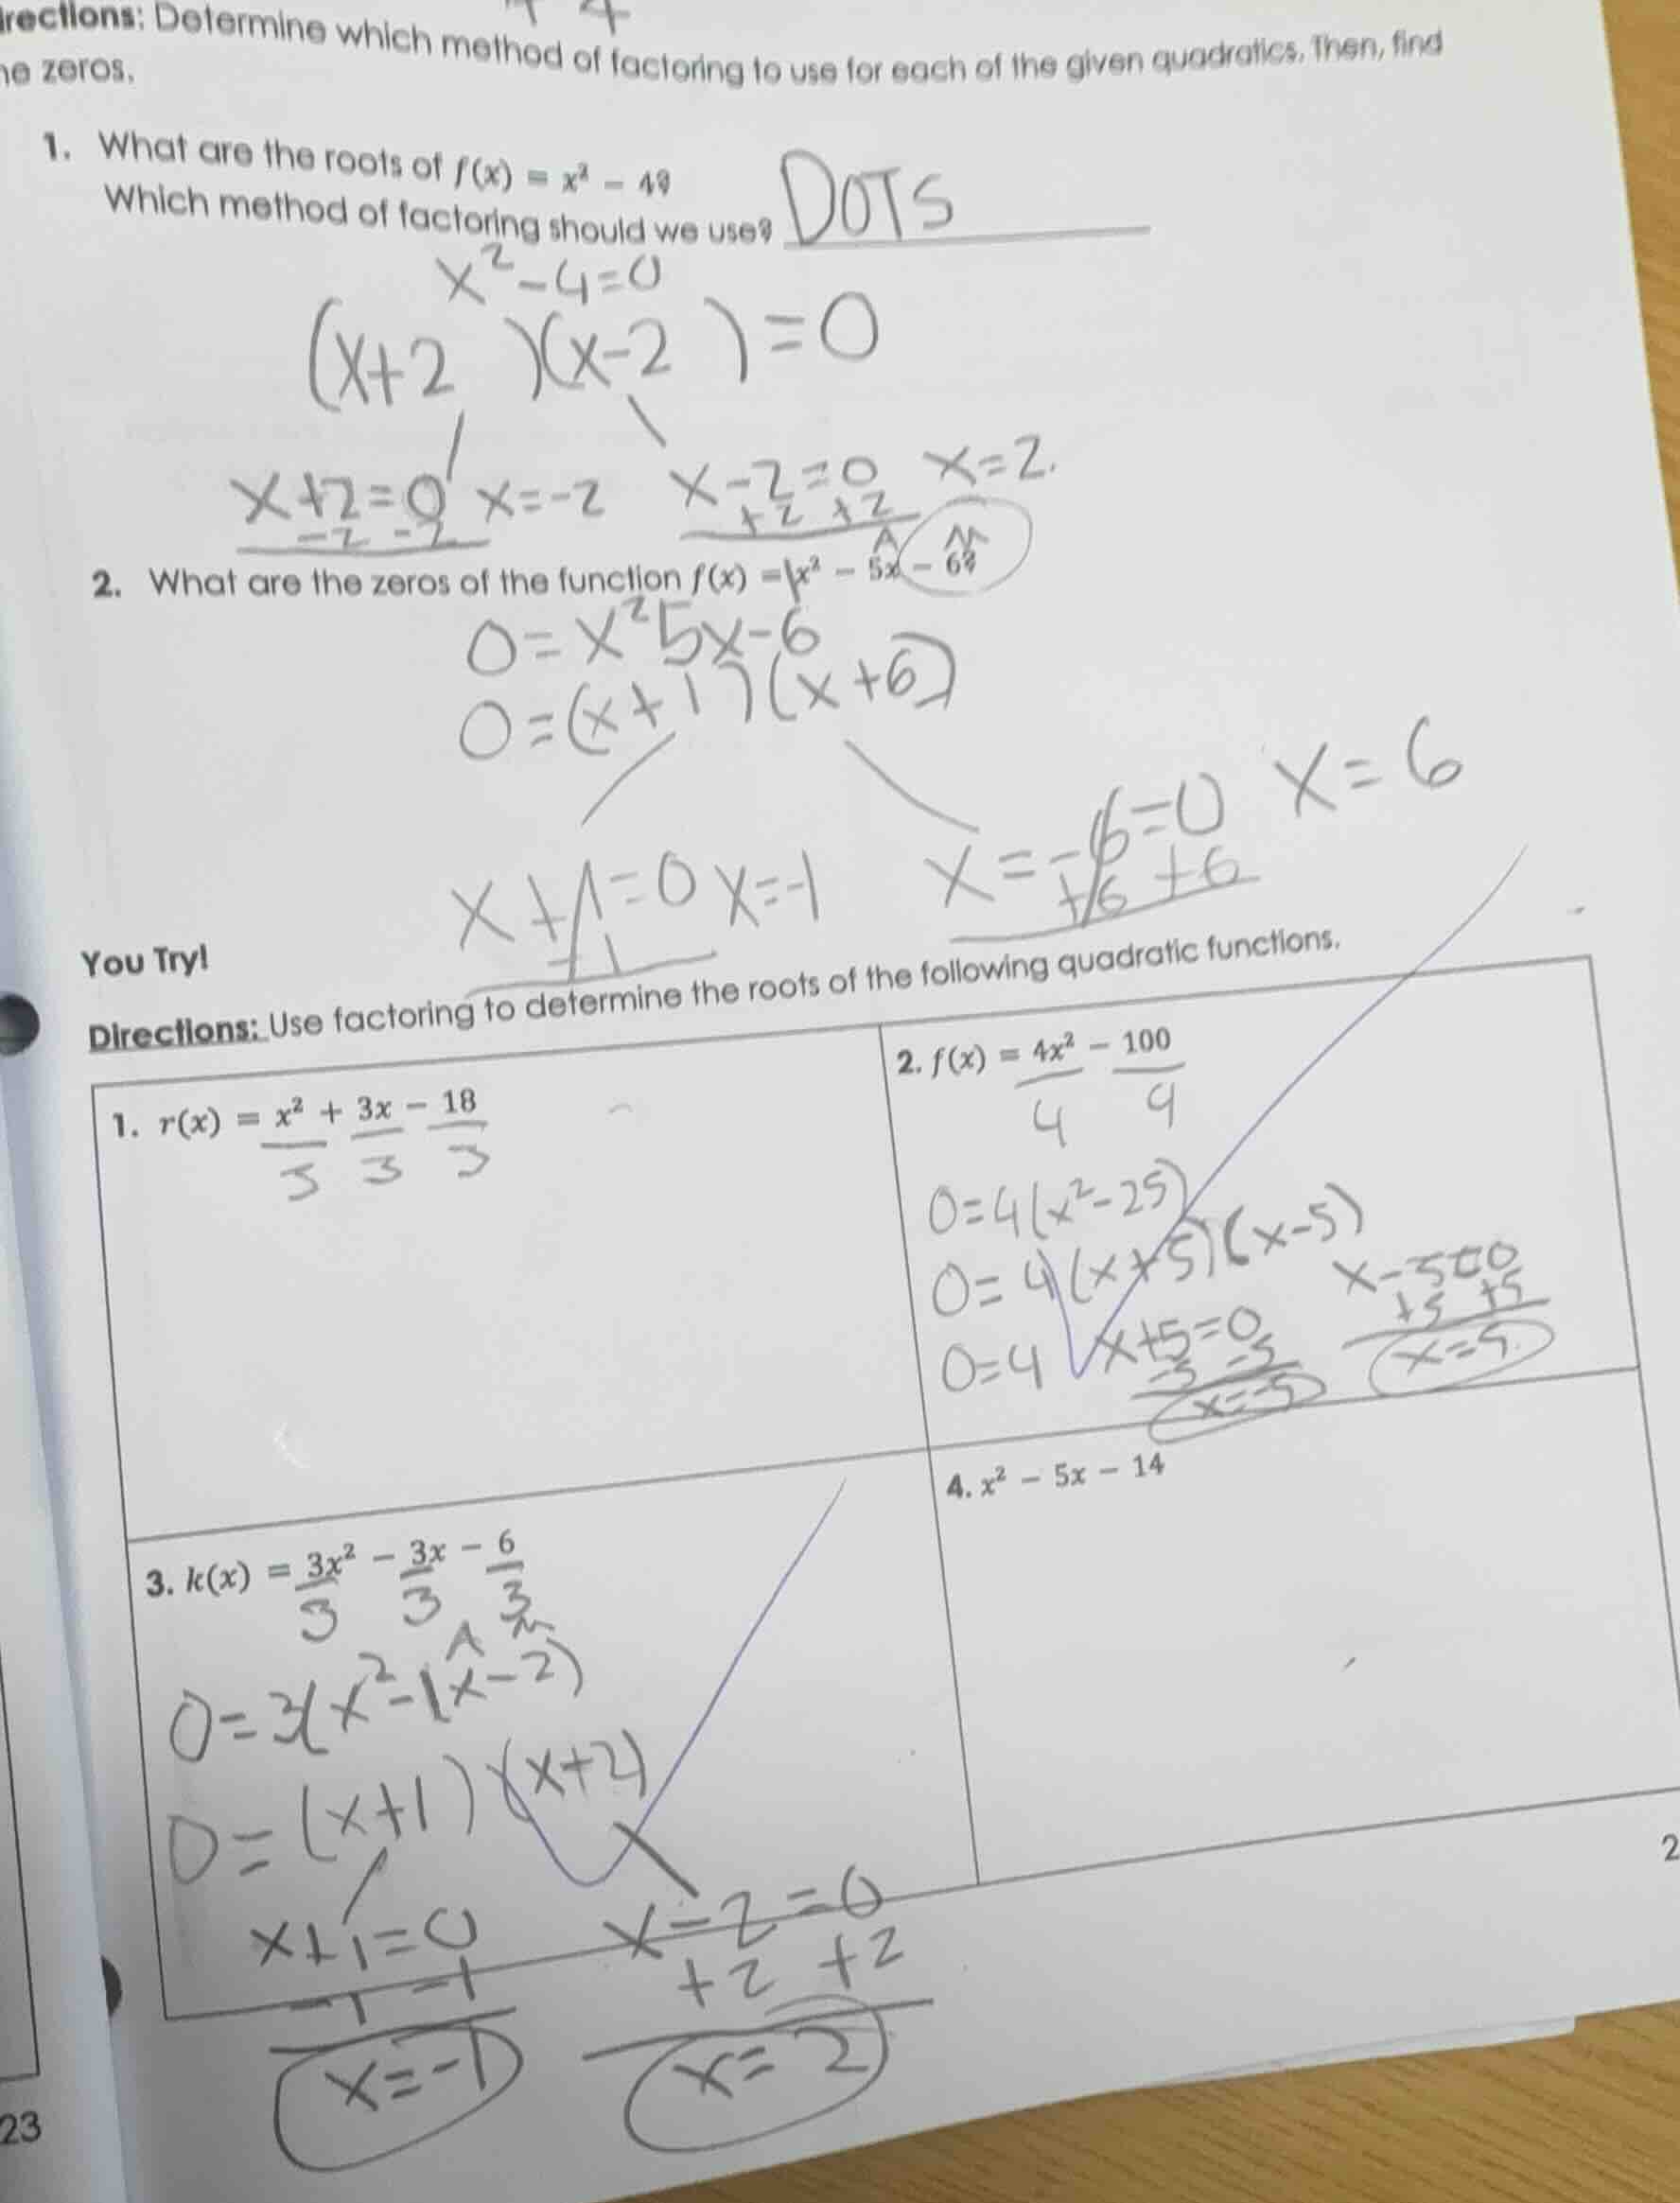 + 4
irections: Determine which method of factoring to use for each of the given quadratics. Then, find
he zeros.
1. What are the roots of f(x) = x² − 4?
Which method of factoring should we use? DOTS
x²-4=0
(x+2)(x-2)=0
x+2=0 x=-2 x-2=0 x=2.
-2 -2 +2 +2
A M
2. What are the zeros of the function f(x) = 1x² − 5x − 6?
0=x²5x-6
0=(x+1)(x+6)
x=-6=0 x=6
+6 +6
x+1=0 x=-1
-1
You Try!
Directions: Use factoring to determine the roots of the following quadratic functions.
1. r(x) = x² + 3x − 18
3 3 3
2. f(x) = 4x² − 100
4 4
0=4(x²-25)
0=4(x+5)(x-5)
0=4 x+5=0 x-5=0
-5 -5 +5 +5
x=-5 x=5.
3. k(x) = 3x² − 3x − 6
3 3 3
A M
0=3(x²-1x-2)
0=(x+1)(x+2)
x+1=0 x-2=0
-1 -1 +2 +2
x=-1 x=2
4. x² − 5x − 14
2
23